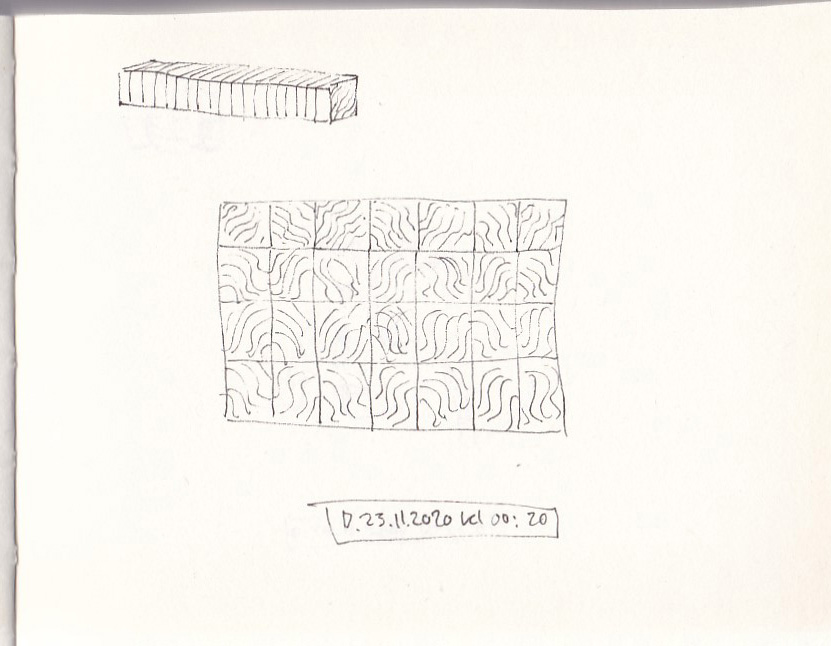 D. 23.11.2020 kl 00:20